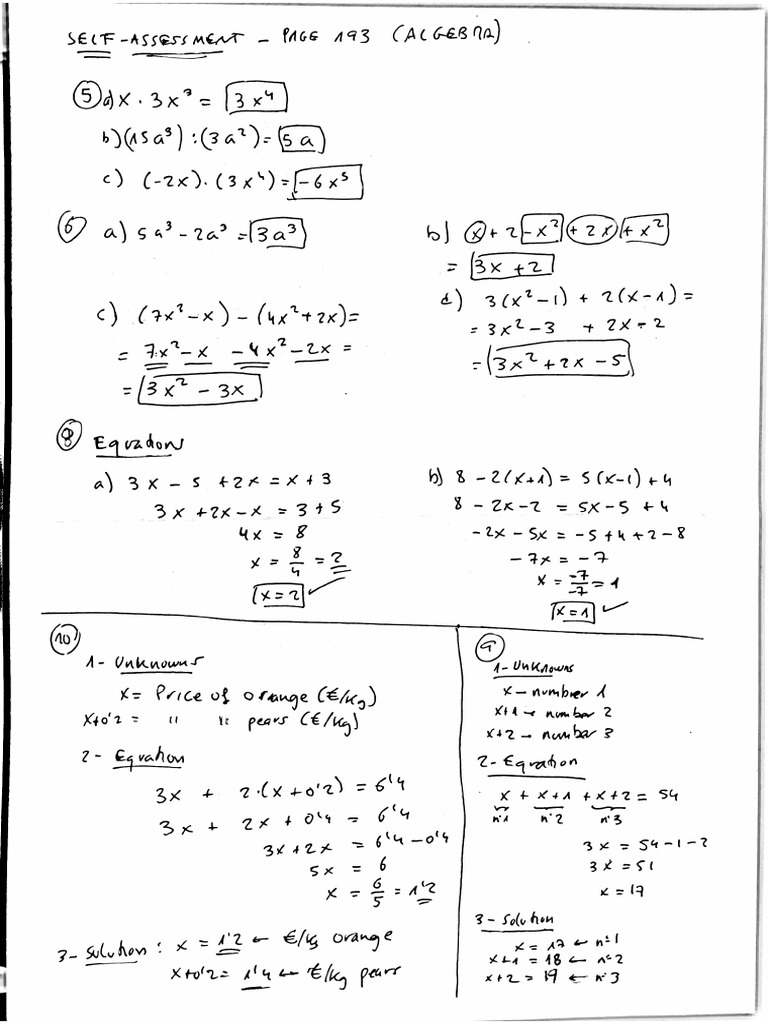 SELF-ASSESSMENT - PAGE 193 (ALGEBRA)
5 a) x · 3x³ = 3x⁴
b) (15a³) : (3a²) = 5a
c) (-2x) · (3x⁴) = -6x⁵
6 a) 5a³ - 2a³ = 3a³
b) x + 2 - x² + 2x + x²
= 3x + 2
c) (7x² - x) - (4x² + 2x) =
= 7x² - x - 4x² - 2x =
= 3x² - 3x
d) 3(x² - 1) + 2(x - 1) =
= 3x² - 3 + 2x - 2
= 3x² + 2x - 5
8 Equations
a) 3x - 5 + 2x = x + 3
3x + 2x - x = 3 + 5
4x = 8
x = 8/4 = 2
x = 2 ✓
b) 8 - 2(x+1) = 5(x-1) + 4
8 - 2x - 2 = 5x - 5 + 4
-2x - 5x = -5 + 4 + 2 - 8
-7x = -7
x = -7/-7 = 1
x = 1 ✓
10
1- Unknowns
x = Price of orange (€/kg)
x+0'2 = " " pears (€/kg)
2- Equation
3x + 2·(x+0'2) = 6'4
3x + 2x + 0'4 = 6'4
3x + 2x = 6'4 - 0'4
5x = 6
x = 6/5 = 1'2
3- Solution: x = 1'2 ← €/kg orange
x+0'2 = 1'4 ← €/kg pears
9
1- Unknowns
x - number 1
x+1 → number 2
x+2 → number 3
2- Equation
x + x+1 + x+2 = 54
nº1 nº2 nº3
3x = 54 - 1 - 2
3x = 51
x = 17
3- Solution
x = 17 ← nº1
x+1 = 18 ← nº2
x+2 = 19 ← nº3